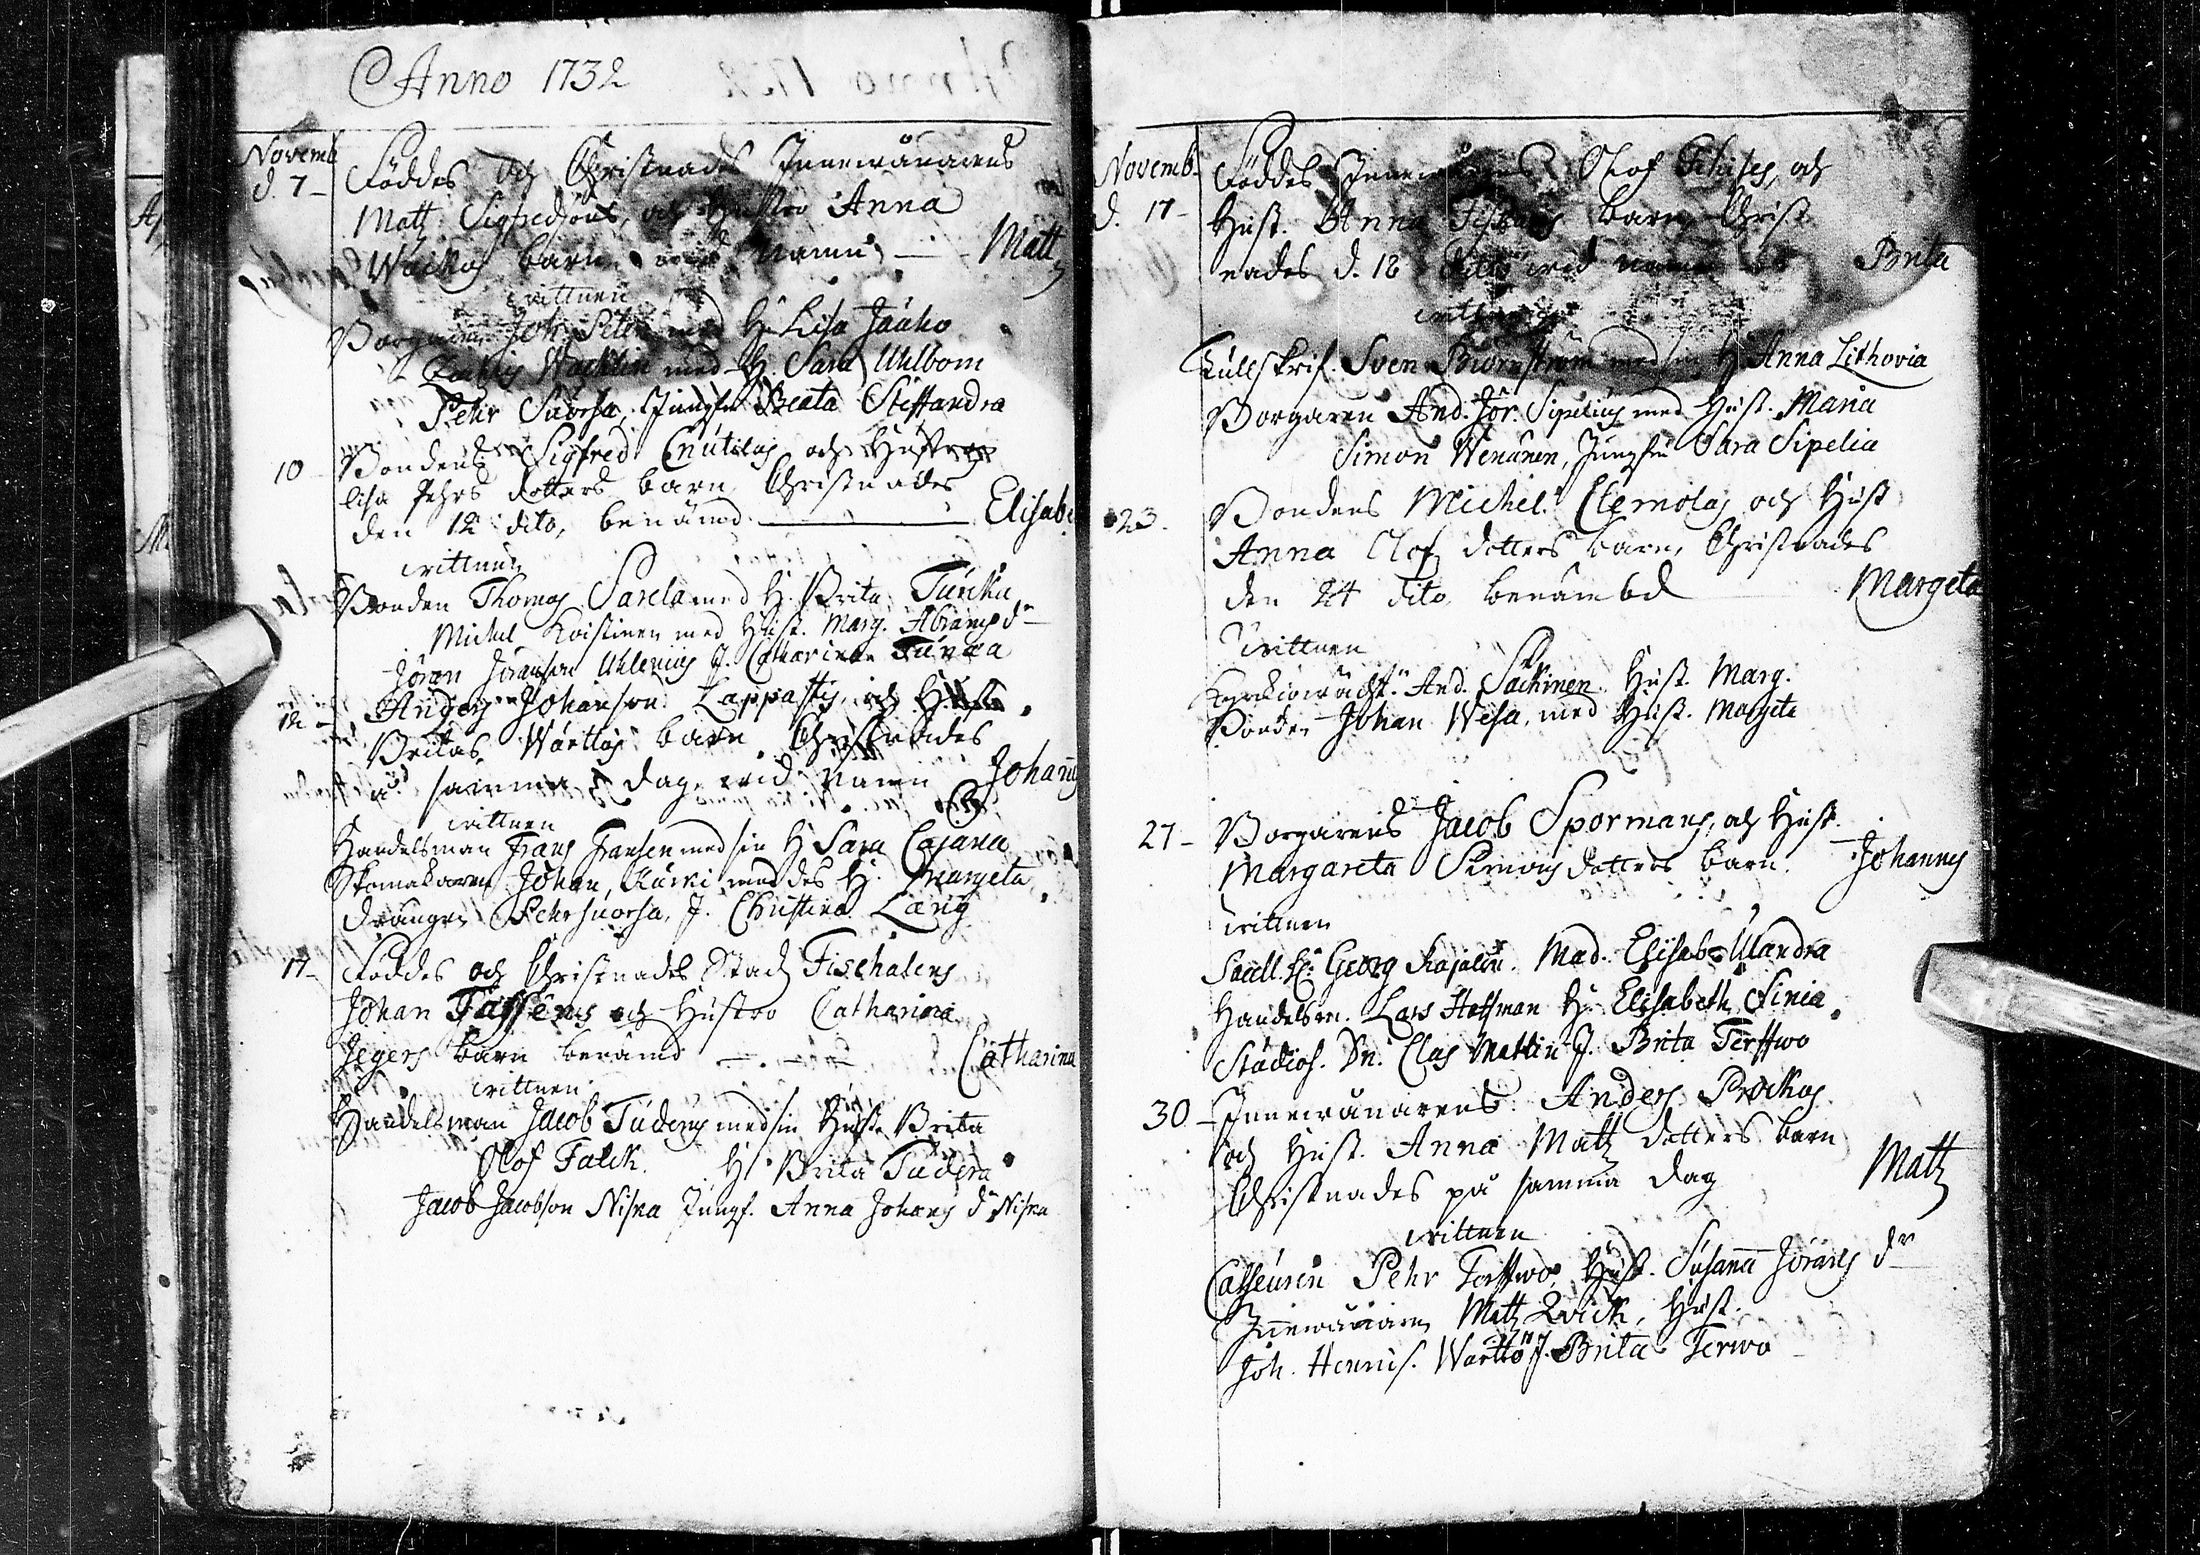 Anno 1732
Novemb
d. 7 - Föddes och Christnades Innewånarens
Matz Sigfredsons, och Hustro Anna
barn wid namn - Matz
wittnen
Borgaren Joh. med H. Lisa Jaako
Wacklin med H. Sara Uhlbom
Pehr Suorsa, Jungfru Beata Steffandra
10 Bondens Sigfred Cnutilas och Hustros
Lisa Pehrs dotters barn Christnades
den 12 dito, benämd Elisab
wittnen
Bonden Thomas Sarela med H. Brita Turcku
Michel Koistinen med Hust. Marg. Abrams dr
Jöran Jöranson Uhlenius J. Catharina
12 - Anders Johanson Lappalls och Hustro
Britas Wärttös barn Christnades
å samma dag wid namn Johans
wittnen
Handelsman Frans Fransen med sin H Sara Cajana
Skomakaren Johan med des H. Margeta
Drängen Pehr Suorsa, J. Christina Lang
17 - Föddes och Christnades Stads Fischalens
Johan och Hustro Catharina
Jegers barn benämd - Catharina
wittnen
Handelsman Jacob Tuderus med sin Hust. Brita
Olof Falck. H Brita Tudera
Jacob Jacobson Niska Jungf. Anna Johans dr Niska
Novemb.
d. 17 - Föddes Innewånarens Olof och
Hust. Anna barn Christ
nades d. 18 dito wid namn Brita
wittnen
Tullskrif. Sven Biurström med sin H Anna Lithovia
Borgaren And. Jör. Sipelius med Hust. Maria
Simon Wenanen, Jungfru Sara Sipelia
23. Bondens Michel Clemolas och Hust
Anna Olofs dotters barn, Christnades
den 24 dito benämbd Margeta
Wittnen
Kyrckiowächt. And. Sackinen Hust. Marg.
Bonden Johan Wesa, med Hust. Margeta
27 - Borgarens Jacob Spormans, och Hust.
Margareta Simons dotters barn. Johannes
wittnen
Sacell. H. Georg Kajalen. Mad. Elisab. Ulandra
Handelsm. Lars Hoffman H. Elisabeth Finia
Studios. Dn. Clas Mattin J. Brita Terffwo
30 - Innewånarens Anders Prockos
och Hust. Anna Matz dotters barn
Christnades på samma dag Matz
wittnen
Casseuren Pehr Terffwo, Hust. Susana Jörans dr
Innewånaren Matz Qwick, Hust.
Joh. Henriss. Wärttö J. Brita Terwo